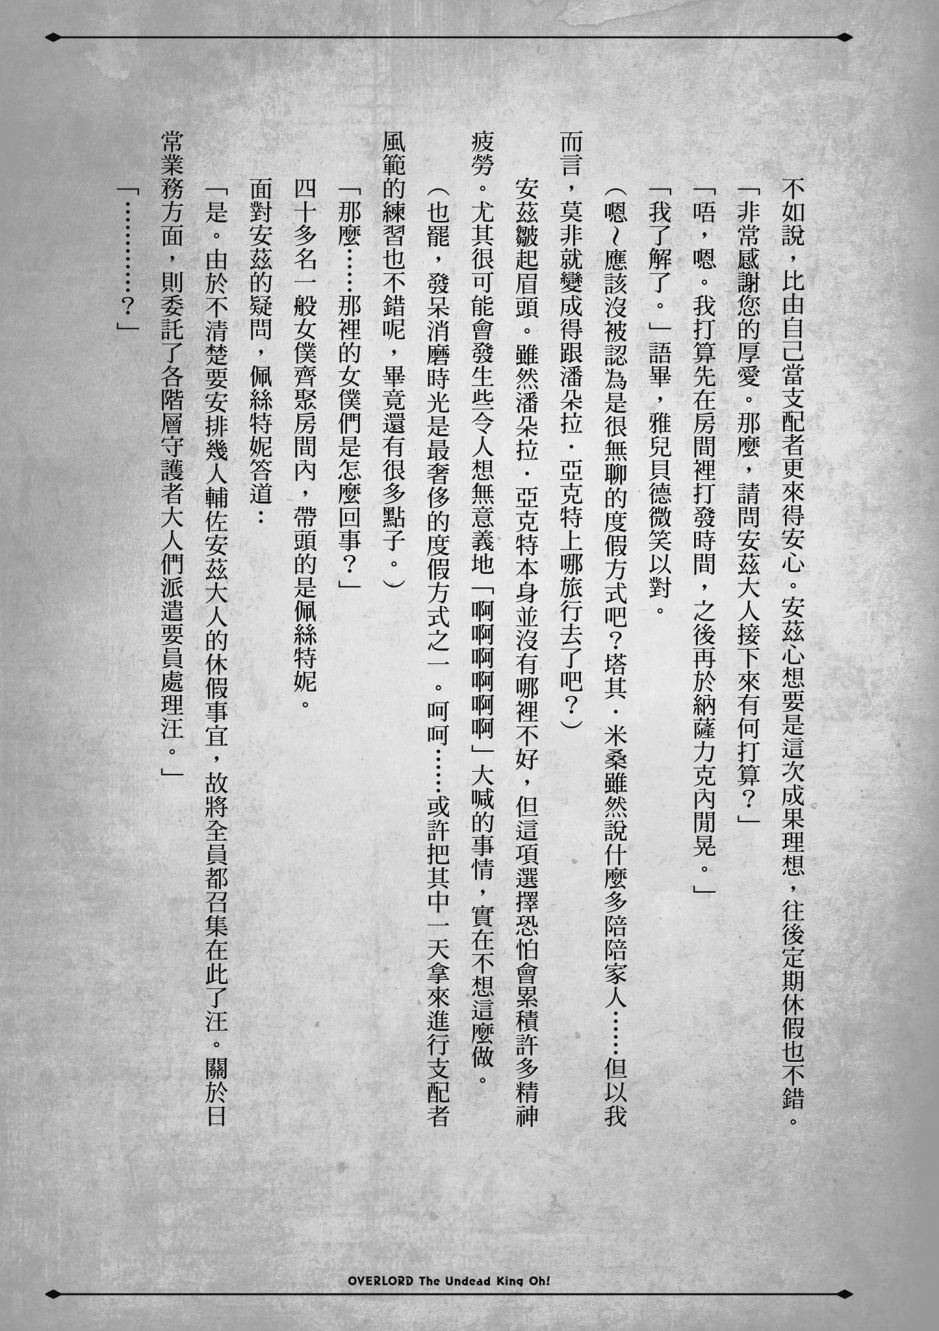 不如說，比由自己當支配者更來得安心。安茲心想要是這次成果理想，往後定期休假也不錯。
「非常感謝您的厚愛。那麼，請問安茲大人接下來有何打算？」
「唔，嗯。我打算先在房間裡打發時間，之後再於納薩力克內閒晃。」
「我了解了。」語畢，雅兒貝德微笑以對。
（嗯～應該沒被認為是很無聊的度假方式吧？塔其．米桑雖然說什麼多陪陪家人……但以我
而言，莫非就變成得跟潘朵拉．亞克特上哪旅行去了吧？）
安茲皺起眉頭。雖然潘朵拉．亞克特本身並沒有哪裡不好，但這項選擇恐怕會累積許多精神
疲勞。尤其很可能會發生些令人想無意義地「啊啊啊啊啊啊」大喊的事情，實在不想這麼做。
（也罷，發呆消磨時光是最奢侈的度假方式之一。呵呵……或許把其中一天拿來進行支配者
風範的練習也不錯呢，畢竟還有很多點子。）
「那麼……那裡的女僕們是怎麼回事？」
四十多名一般女僕齊聚房間內，帶頭的是佩絲特妮。
面對安茲的疑問，佩絲特妮答道：
「是。由於不清楚要安排幾人輔佐安茲大人的休假事宜，故將全員都召集在此了汪。關於日
常業務方面，則委託了各階層守護者大人們派遣要員處理汪。」
「…………？」
OVERLORD The Undead King Oh!